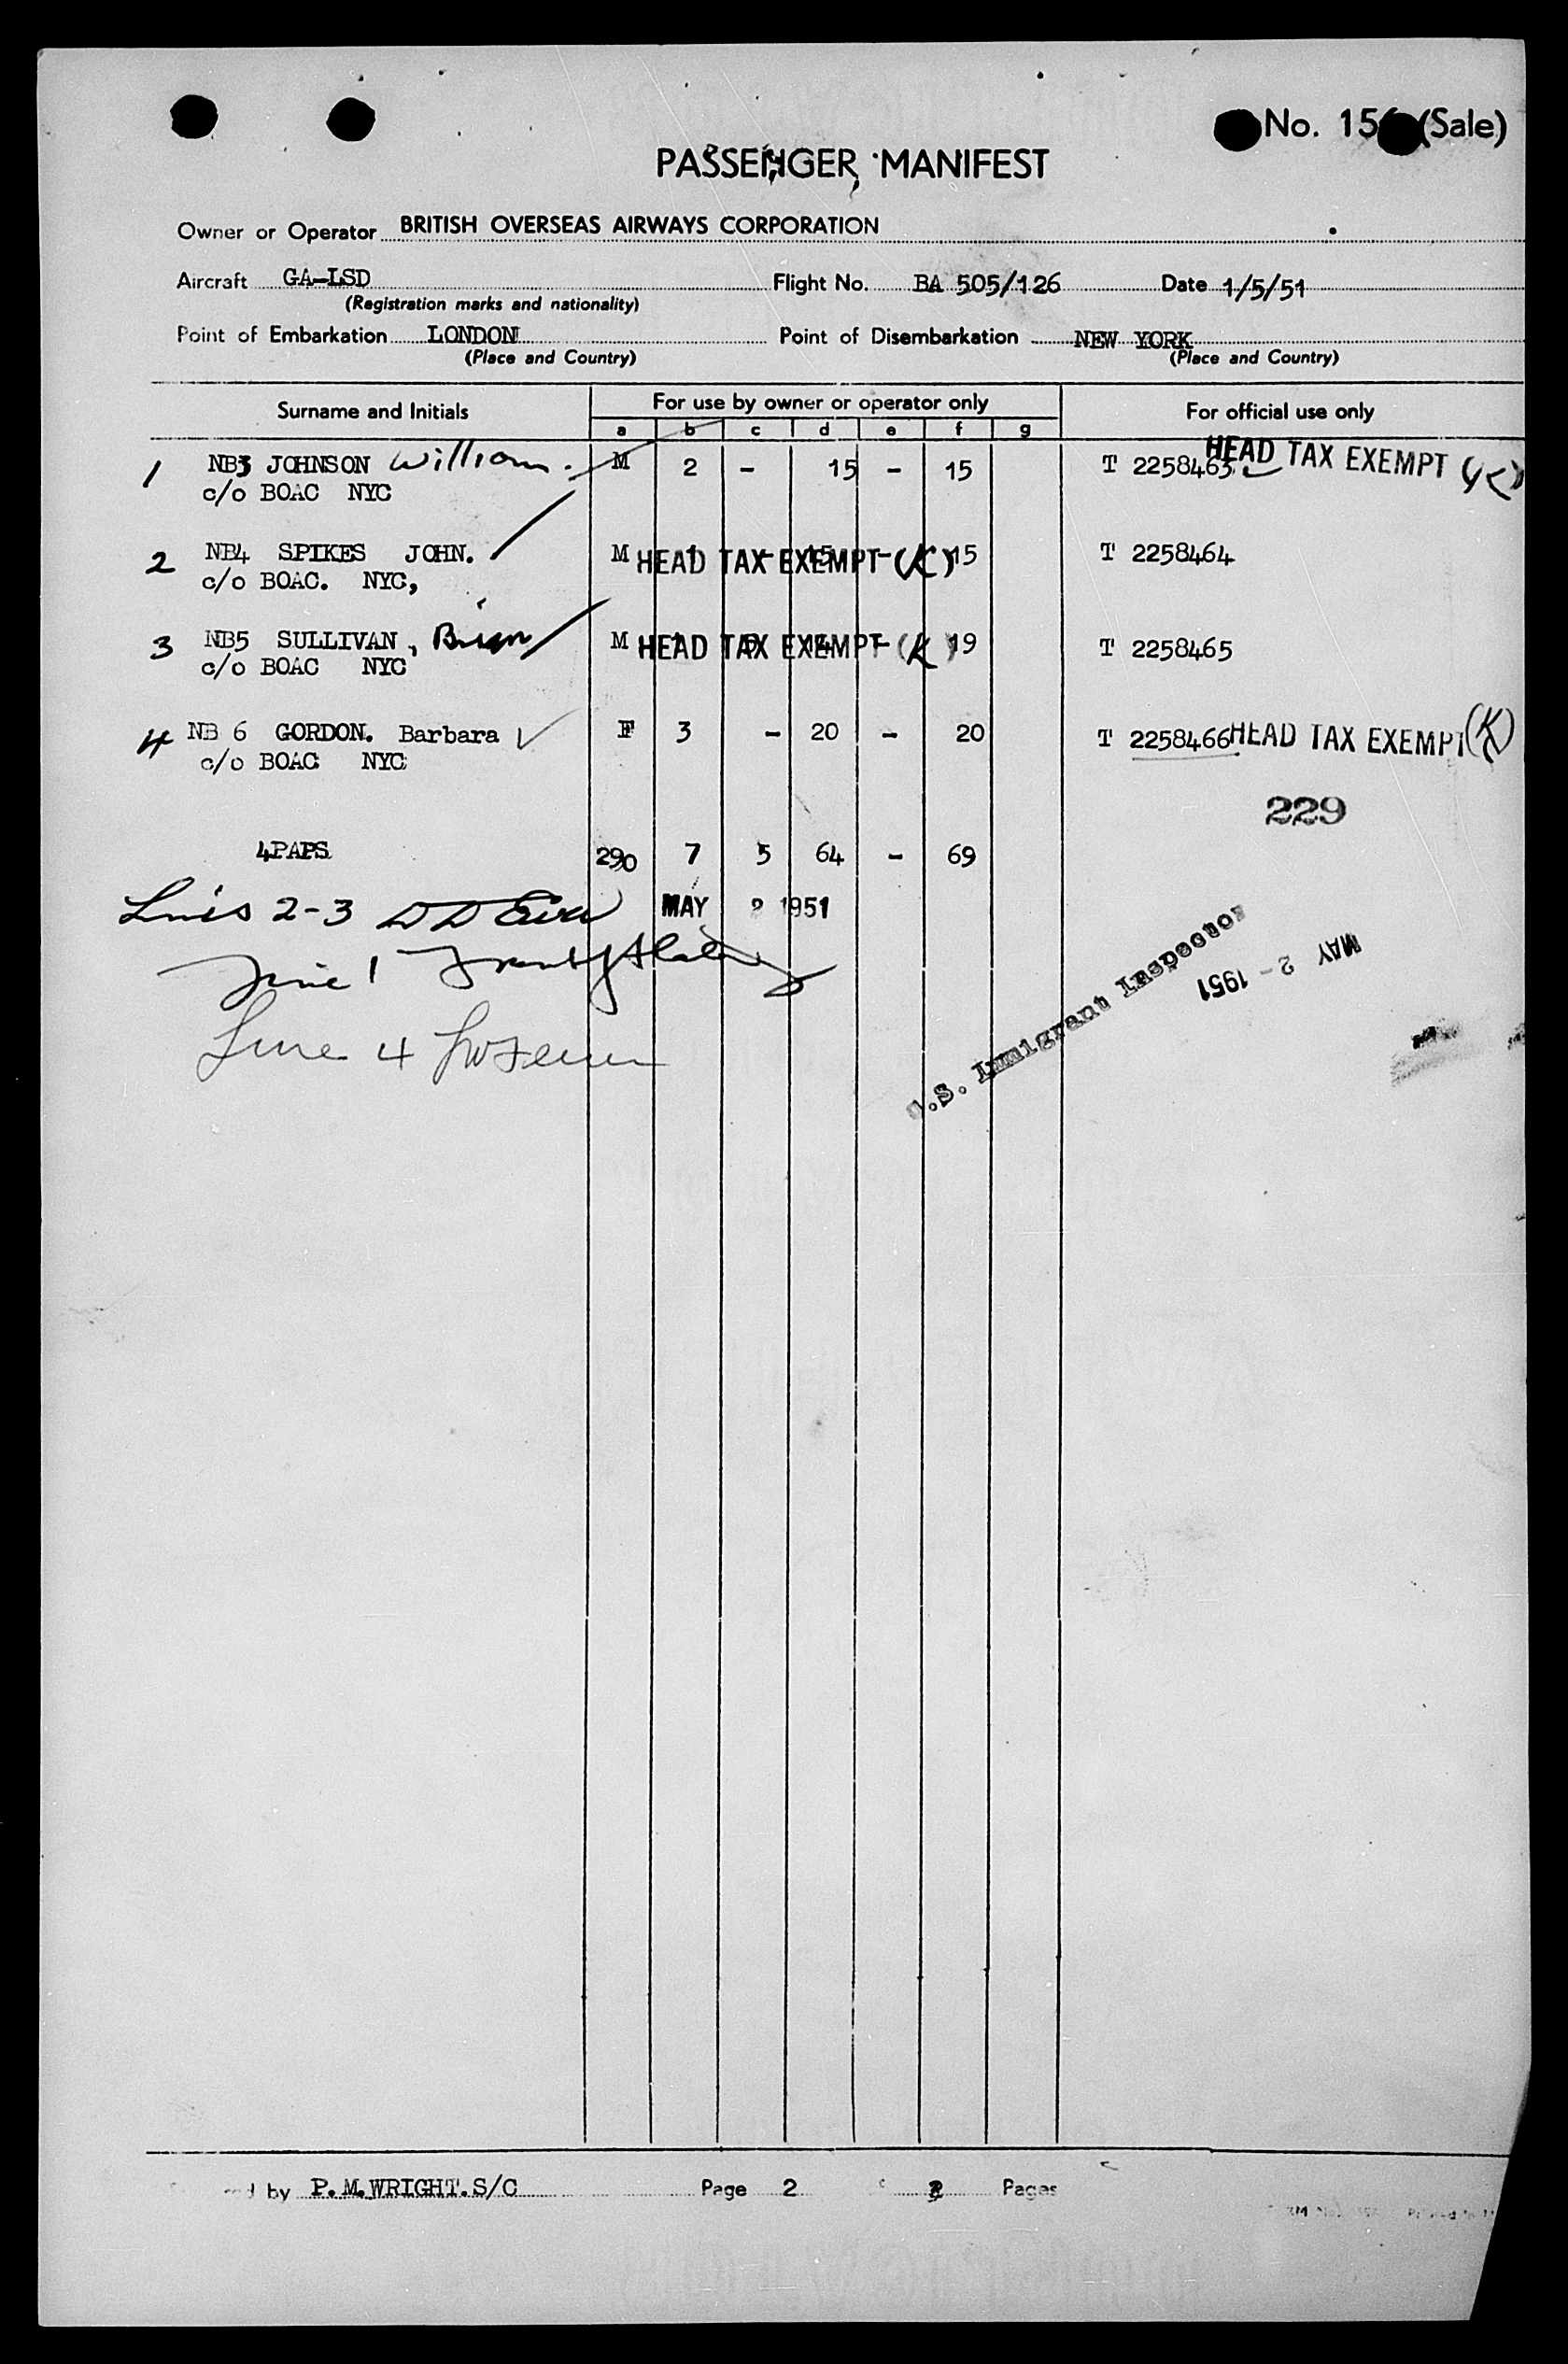 No. 15 (Sale)
PASSENGER MANIFEST
Owner or Operator BRITISH OVERSEAS AIRWAYS CORPORATION
Aircraft GA-LSD Flight No. BA 505/126 Date 1/5/51
(Registration marks and nationality)
Point of Embarkation LONDON Point of Disembarkation NEW YORK
(Place and Country) (Place and Country)
Surname and Initials For use by owner or operator only For official use only
a b c d e f g
1 NB3 JOHNSON William. M 2 - 15 - 15 T 2258463 HEAD TAX EXEMPT (K)
c/o BOAC NYC
2 NB4 SPIKES JOHN. M HEAD TAX EXEMPT (K) 15 T 2258464
c/o BOAC. NYC,
3 NB5 SULLIVAN, Brian M HEAD TAX EXEMPT (K) 19 T 2258465
c/o BOAC NYC
4 NB 6 GORDON. Barbara F 3 - 20 - 20 T 2258466 HEAD TAX EXEMPT (K)
c/o BOAC NYC
229
4PAPS 290 7 5 64 - 69
Lines 2-3 MAY 2 1951
U.S. Immigrant Inspector
MAY 2 - 1951
Line 1
Line 4
by P.M.WRIGHT.S/C Page 2 Pages